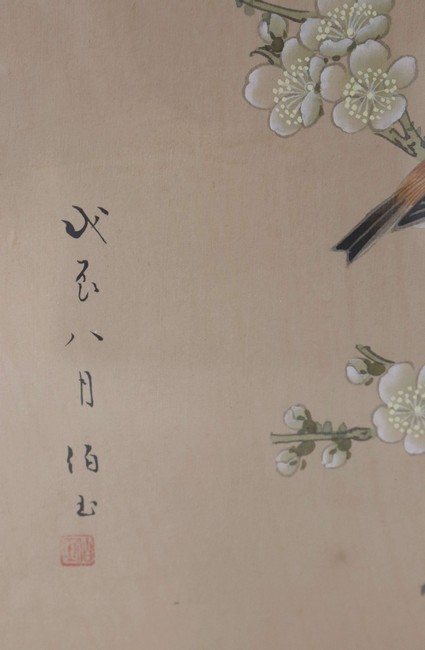 戊辰八月伯玉